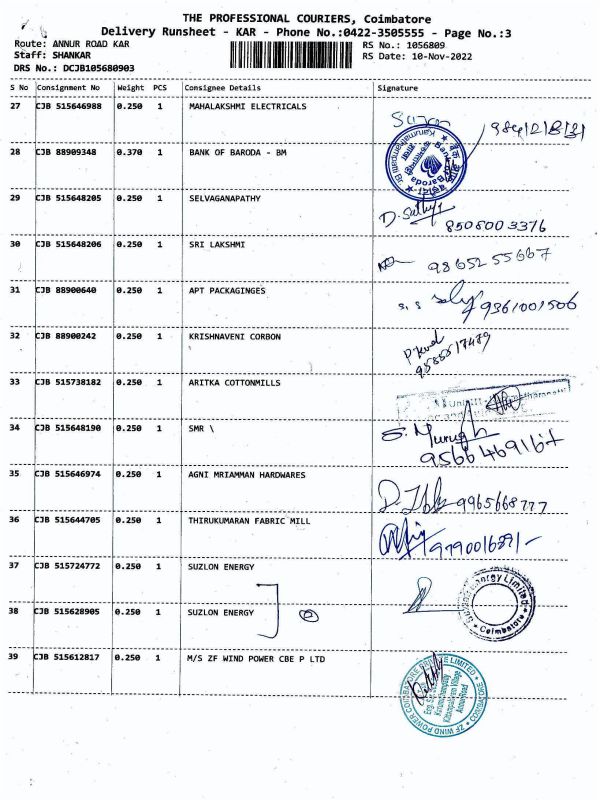 THE PROFESSIONAL COURIERS, Coimbatore
Delivery Runsheet - KAR - Phone No.:0422-3505555 - Page No.:3
Route: ANNUR ROAD KAR
RS No.: 1056809
Staff: SHANKAR
RS Date: 10-Nov-2022
DRS No.: DCJB105680903
S No Consignment No Weight PCS Consignee Details Signature
27 CJB 515646988 0.250 1 MAHALAKSHMI ELECTRICALS
28 CJB 88909348 0.370 1 BANK OF BARODA - BM
29 CJB 515648205 0.250 1 SELVAGANAPATHY
8508003376
30 CJB 515648206 0.250 1 SRI LAKSHMI
9865255667
31 CJB 88900640 0.250 1 APT PACKAGINGES
9361001506
32 CJB 88900242 0.250 1 KRISHNAVENI CORBON
33 CJB 515738182 0.250 1 ARITKA COTTONMILLS
34 CJB 515648190 0.250 1 SMR \
S. Murugh
35 CJB 515646974 0.250 1 AGNI MRIAMMAN HARDWARES
9965668777
36 CJB 515644705 0.250 1 THIRUKUMARAN FABRIC MILL
37 CJB 515724772 0.250 1 SUZLON ENERGY
Suzlon Energy Limited
Coimbatore
38 CJB 515628905 0.250 1 SUZLON ENERGY
39 CJB 515612817 0.250 1 M/S ZF WIND POWER CBE P LTD
ZF WIND POWER COIMBATORE PRIVATE LIMITED
Annur Road